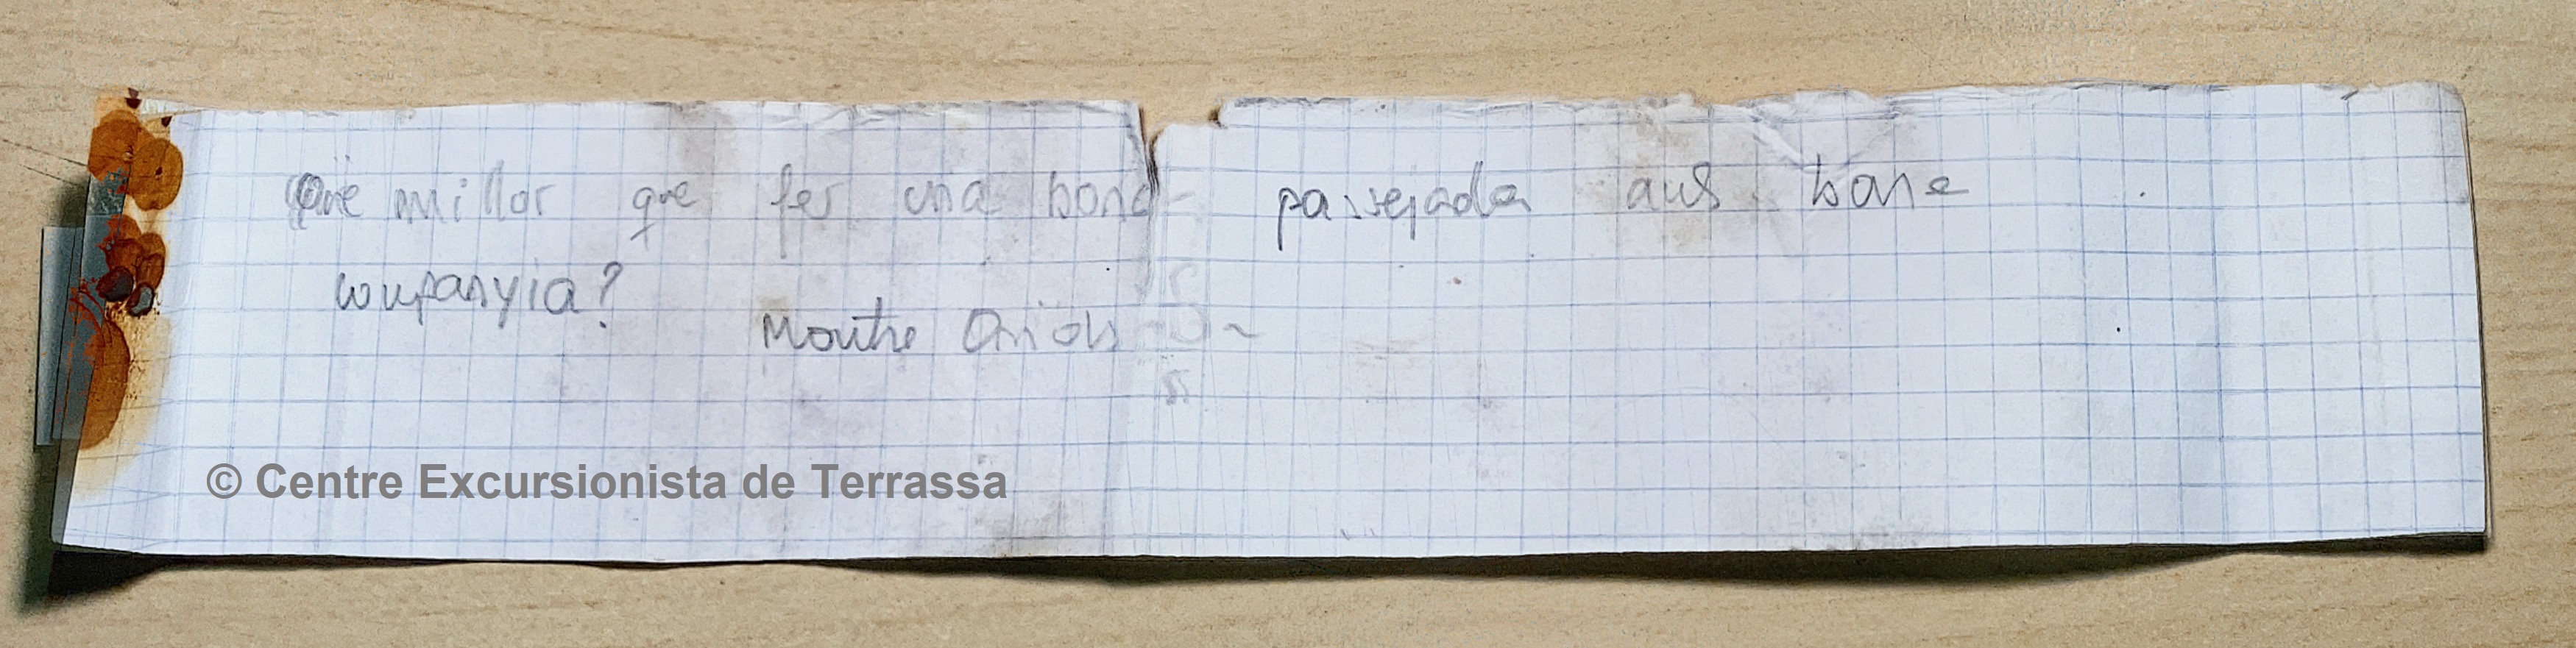 Què millor que fer una bona passejada amb bona
companyia?
Montse Oriols
© Centre Excursionista de Terrassa